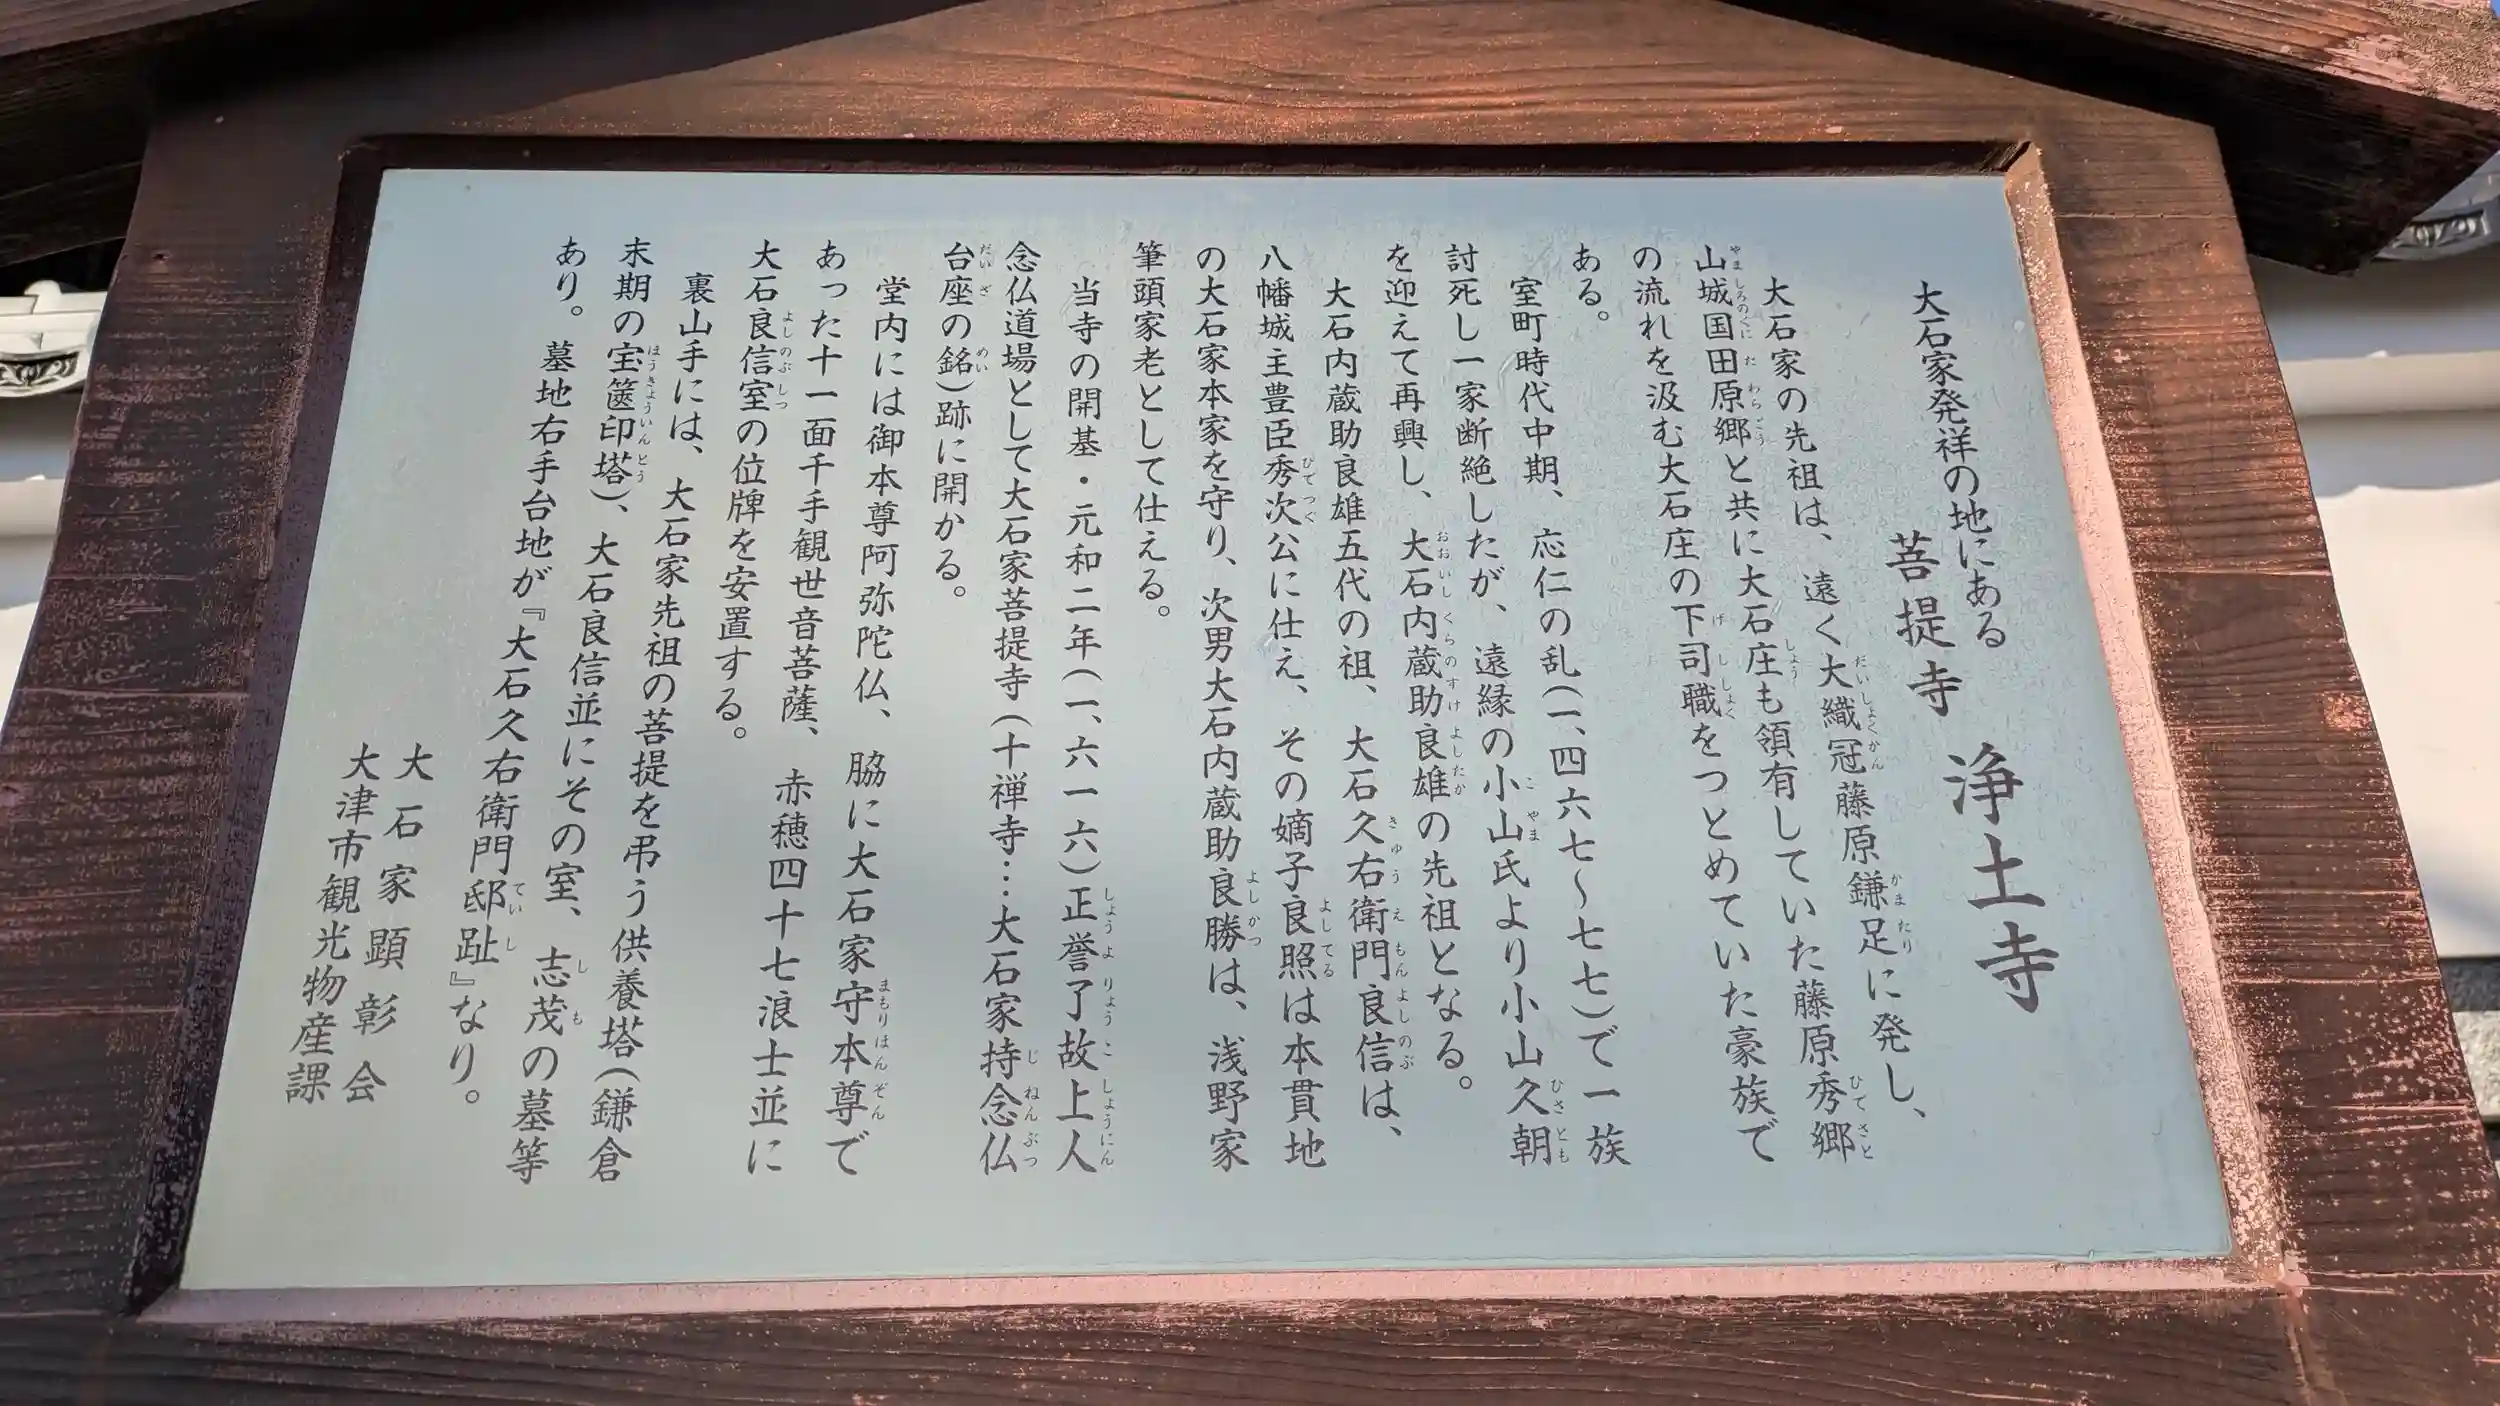 大石家発祥の地にある
菩提寺 浄土寺
大石家の先祖は、遠く大織冠藤原鎌足に発し、
山城国田原郷と共に大石庄も領有していた藤原秀郷
の流れを汲む大石庄の下司職をつとめていた豪族で
ある。
室町時代中期、応仁の乱(一、四六七〜七七)で一族
討死し一家断絶したが、遠縁の小山氏より小山久朝
を迎えて再興し、大石内蔵助良雄の先祖となる。
大石内蔵助良雄五代の祖、大石久右衛門良信は、
八幡城主豊臣秀次公に仕え、その嫡子良照は本貫地
の大石家本家を守り、次男大石内蔵助良勝は、浅野家
筆頭家老として仕える。
当寺の開基・元和二年(一、六一六)正誉了故上人
念仏道場として大石家菩提寺(十禅寺…大石家持念仏
台座の銘)跡に開かる。
堂内には御本尊阿弥陀仏、脇に大石家守本尊で
あった十一面千手観世音菩薩、赤穂四十七浪士並に
大石良信室の位牌を安置する。
裏山手には、大石家先祖の菩提を弔う供養塔(鎌倉
末期の宝篋印塔)、大石良信並にその室、志茂の墓等
あり。墓地右手台地が『大石久右衛門邸趾』なり。
大石家顕彰会
大津市観光物産課